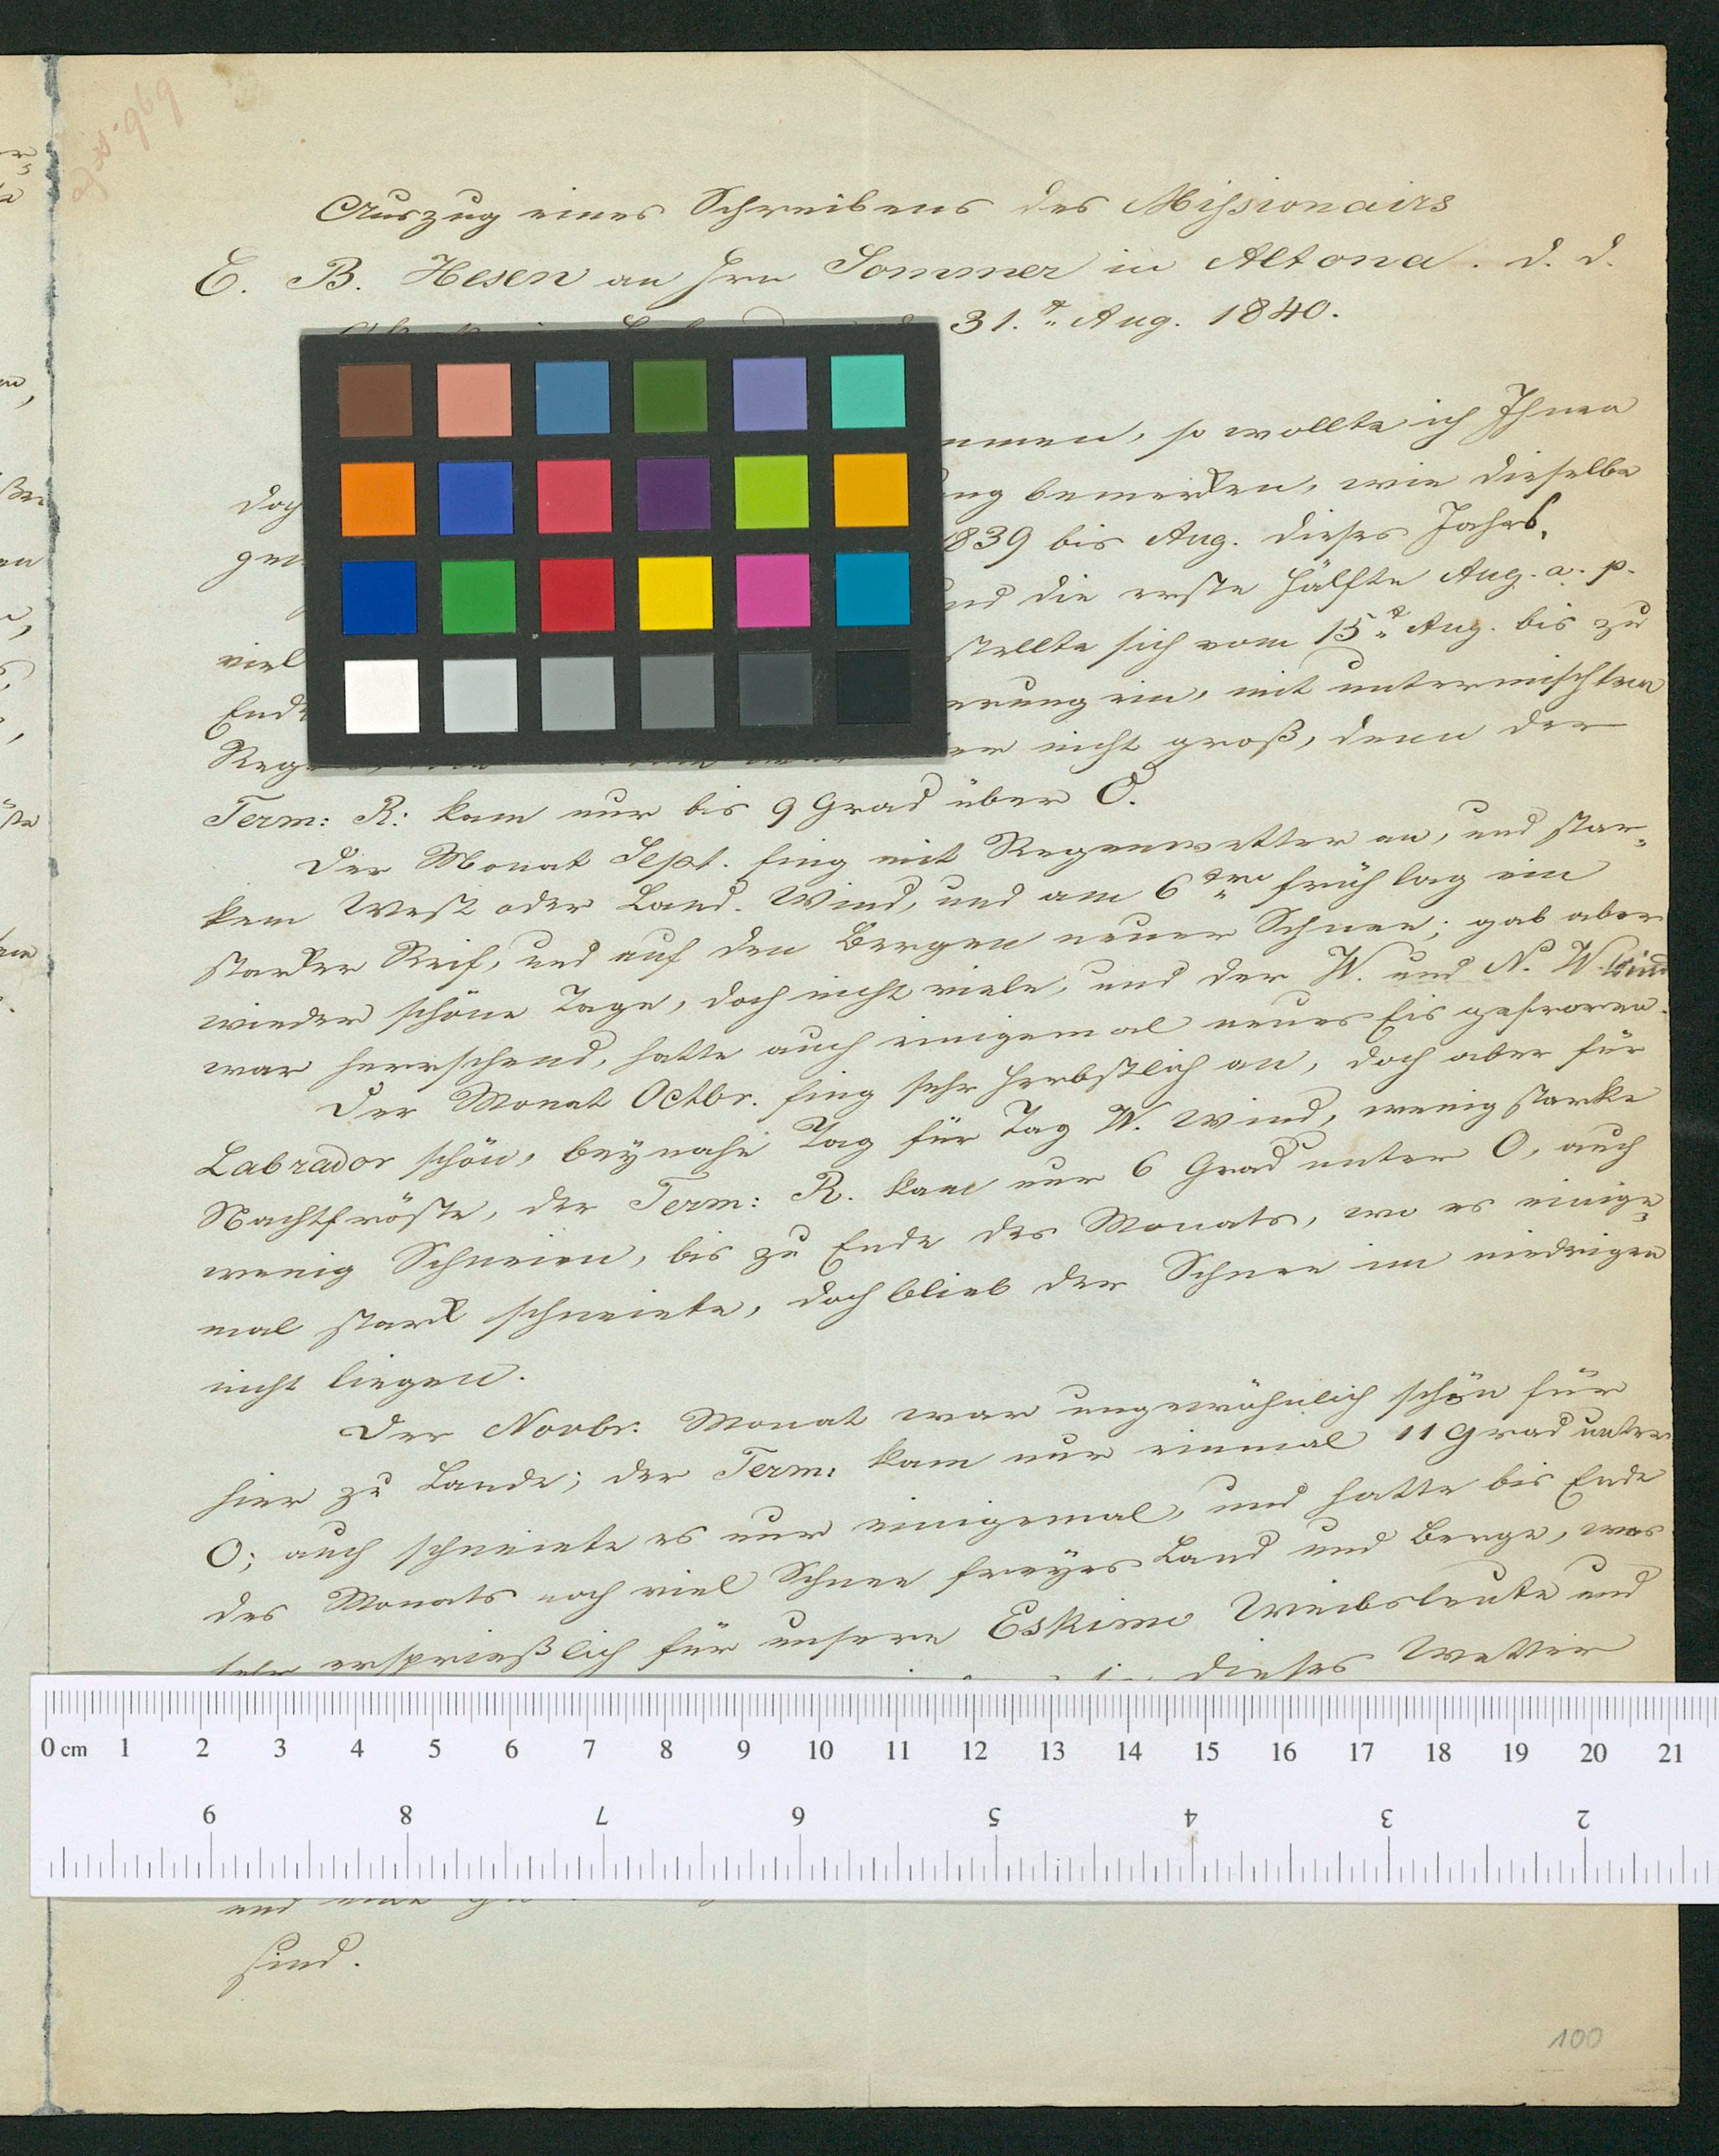 Auszug eines Schreibens des Missionairs
E. B. Hesen an Hrn Sommer in Altona. d. d.
31.t Aug. 1840.
so wollte ich Ihnen
doch bemerken, wie dieselbe
839 bis Aug. dieses Jahrs.
die erste Hälfte Aug. a. p.
viel stellte sich vom 15.t Aug. bis zu
Ende ein, mit untermischten
nicht groß, denn der
Term: R: kam nur bis 9 Grad über 0.
Der Monat Sept. fing mit Regenwetter an, und star-
kem West oder Land-Wind, und am 6ten früh lag ein
starker Reif, und auf den Bergen neuer Schnee; gab aber
wieder schöne Tage, doch nicht viele, und der W. und N. W. Wind
war herrschend, hatte auch einigemal neues Eis gefroren.
Der Monat Octbr. fing sehr herbstlich an, doch aber für
Labrador schön, beynahe Tag für Tag W. Wind, wenig starke
Nachtfröste, der Term: R. kam nur 6 Grad unter 0, auch
wenig Schneien, bis zu Ende des Monats, wo es einige-
mal stark schneiete, doch blieb der Schnee im niedrigen
nicht liegen.
Der Novbr. Monat war ungewöhnlich schön für
hier zu Lande; der Term: kam nur einmal 11 Grad unter
0; auch schneiete es nur einigemal, und hatte bis Ende
des Monats noch viel Schnee freyes Land und Berge, was
sehr ersprießlich für unsere Eskimo Weibsleute und
dieses Wetter
0 cm 1 2 3 4 5 6 7 8 9 10 11 12 13 14 15 16 17 18 19 20 21
9 8 7 6 5 4 3 2
und
sind.
100